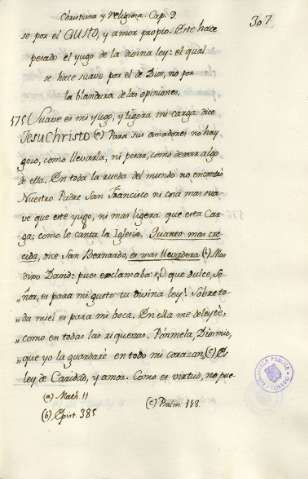 Christiana y Religiosa. Cap. 9
307
se por el GUSTO, y amor propio. Este hace
pesado el yugo de la divina ley: el qual
se hece suave por el de Dios, no por
la blandura de las opiniones.
575 Suave es mi yugo, y ligera mi carga dice
JesuChristo (a) Para sus amadores no hay
gozo, como llevarla, ni pesar, como dexar algo
de ella. En toda la rueda del mundo no encontró
Nuestro Padre San Francisco ni cosa mas sua
ve que este yugo, ni mas ligera que esta Car
ga; como le canta la Iglesia. Quanto mas cre
cida, dice San Bernardo, es mas llevadera (b)
vino David: pues exclamaba: O que dulce, Se
"ñor, es para mi gusto tu divina ley! Sobre to
"da miel es para mi boca. En ella me deleyté,
"como en todas las riquezas. Ponmela, Dios mio,
"que yo la guardaré en todo mi corazon. (c) Es
ley de Caridad, y amor. Como es virtud, no pue
(a) Math. 11
(b) Epist. 385
(c) Psalm. 118.